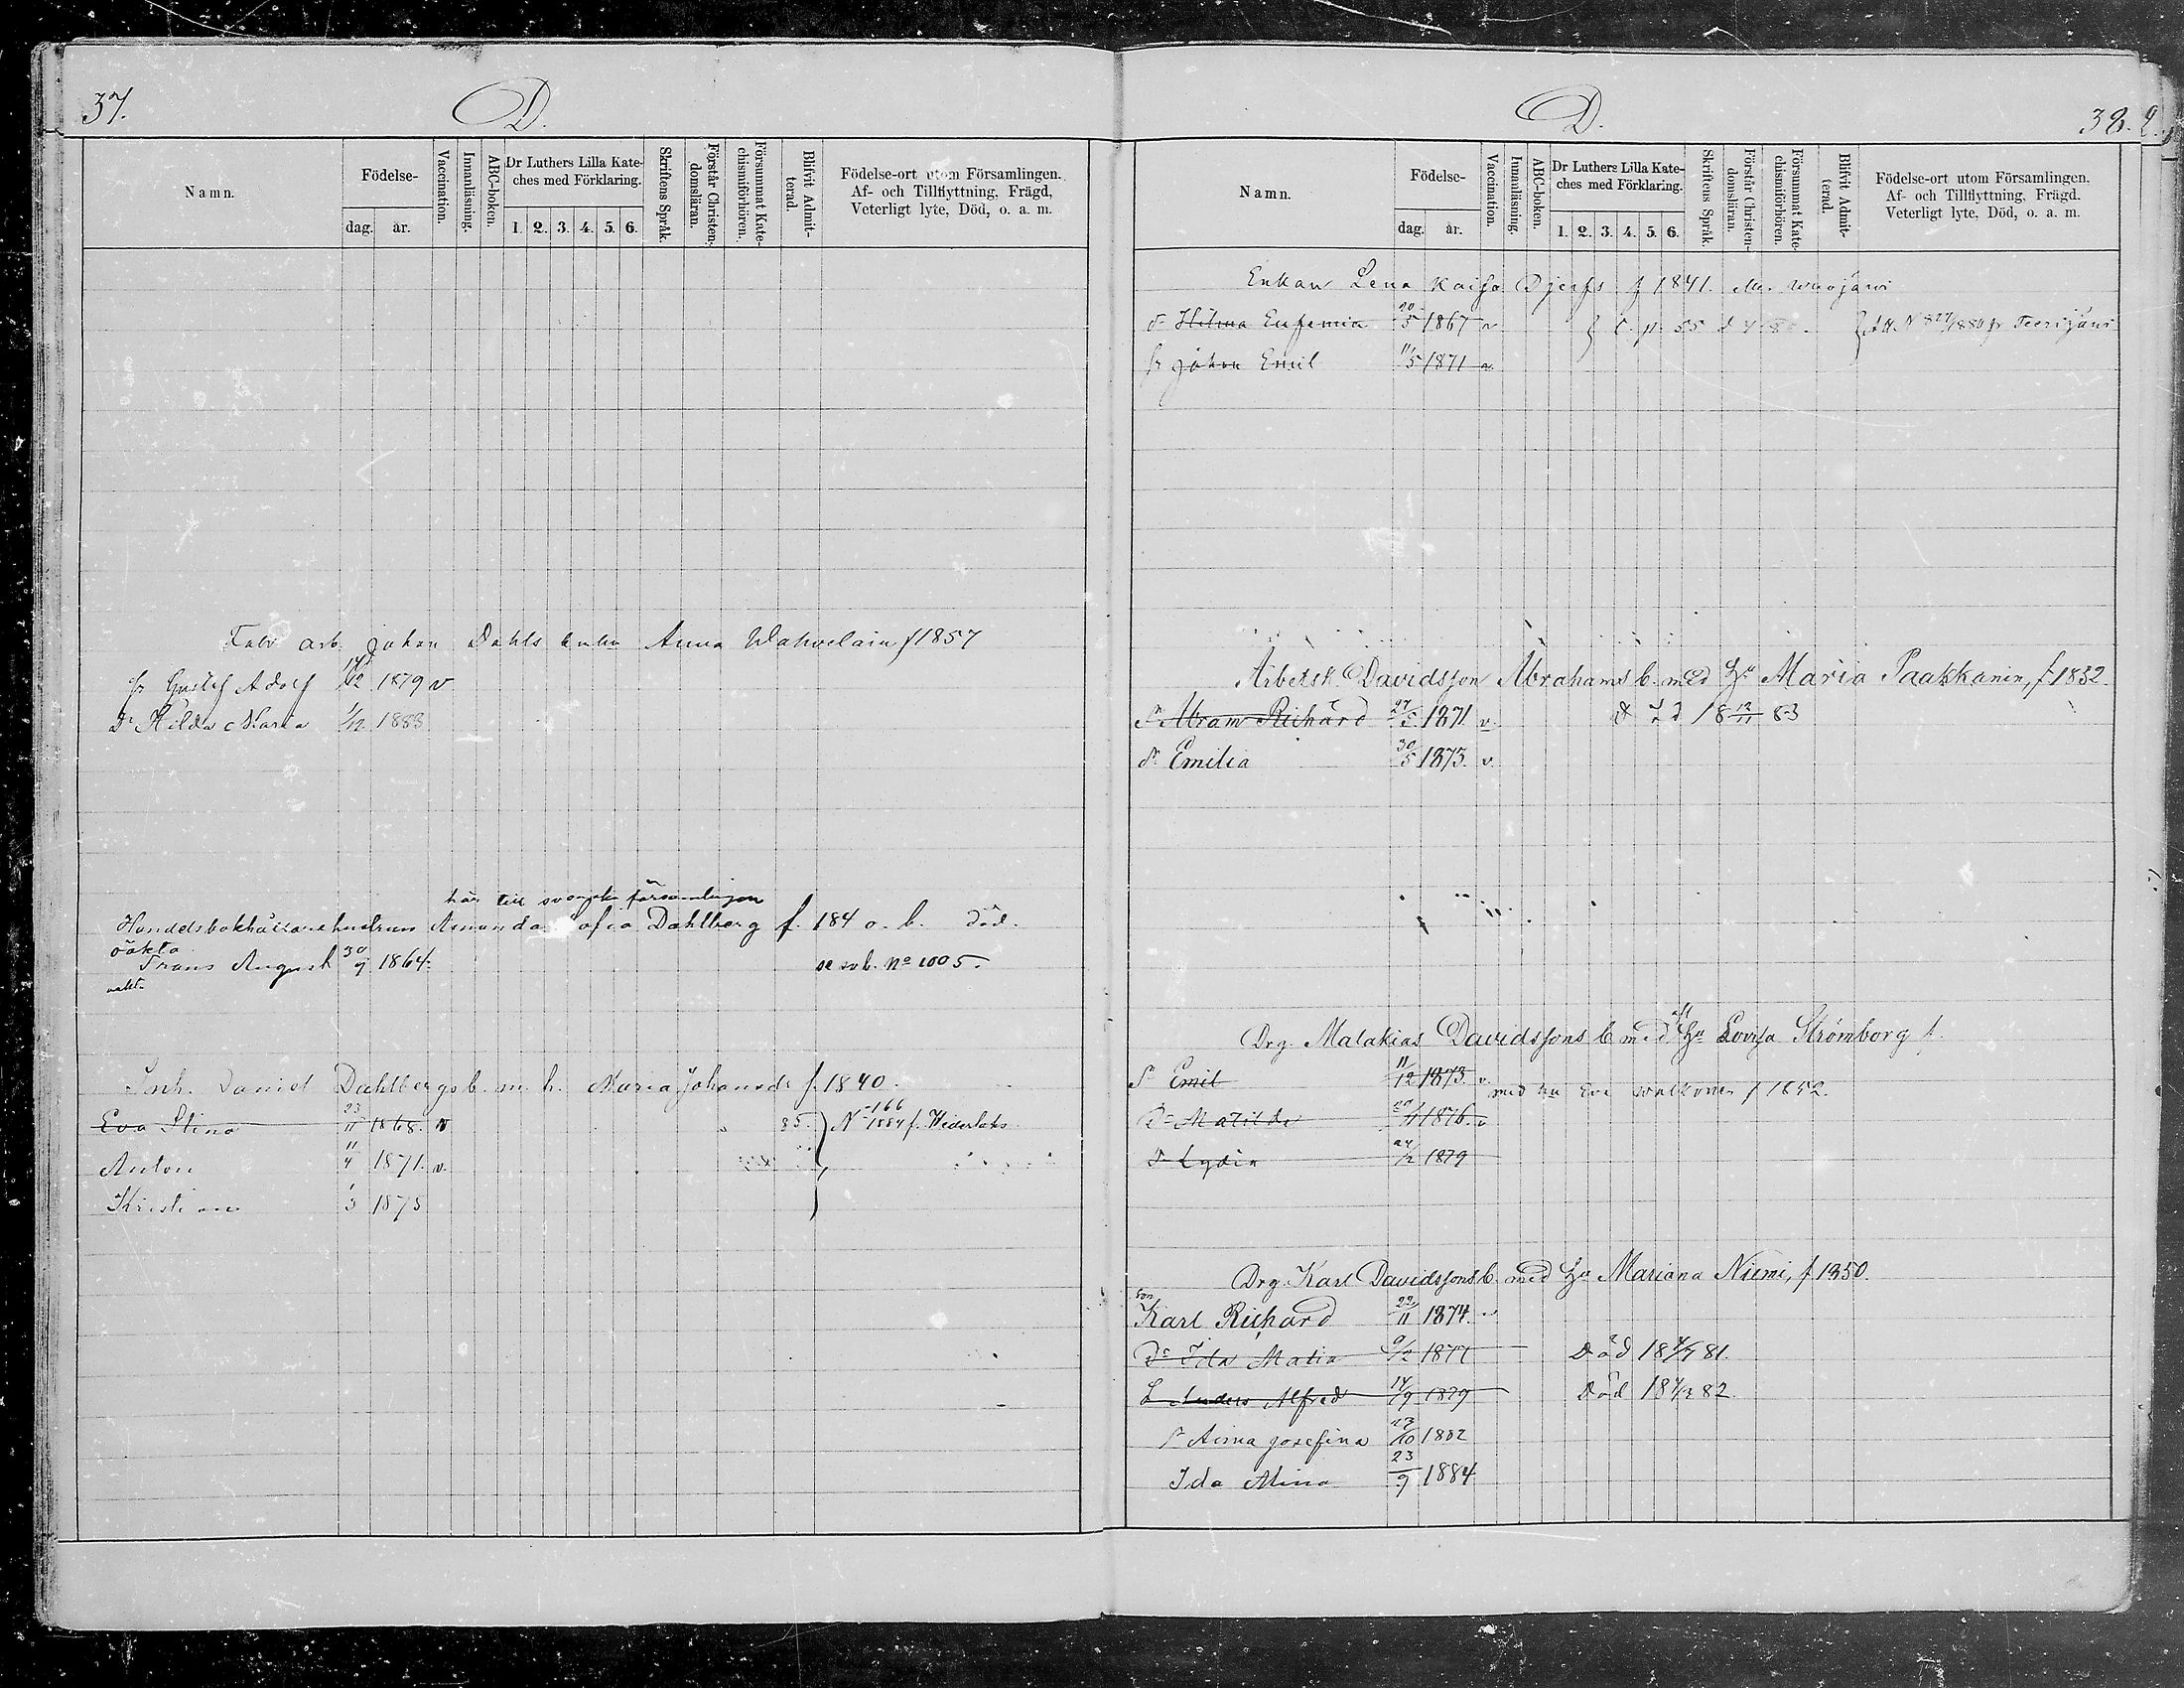 37.
D.
Namn.
Födelse-
dag.
år.
Vaccination.
Innanläsning.
ABC-boken.
Dr Luthers Lilla Kate-
ches med Förklaring.
1. 2. 3. 4. 5. 6.
Skriftens Språk.
Förstår Christen-
domsläran.
Försummat Kate-
chismiförhören.
Blifvit Admit-
terad.
Födelse-ort utom Församlingen.
Af- och Tillflyttning, Frägd,
Veterligt lyte, Död, o. a. m.
Fabr arb. Johan Dahls enka Anna f 1857
sr Gustef Adolf 17/12 1879 v
Dr Hilda Maria 1/12 1883
hör till svenska församlingen
Handelsbokhållarehustrun Amanda Sofia Dahlberg f. 184 o. b. död.
oäkta
Frans August 30/9 1864. se sv b. No 1005.
Inh. Daniel Dahlbergs b. m. h. Maria Johansdr f. 1840.
Eva Stina 23/11 1868. v 85. N 166/1884 f. Wederlaks
Anton 11/4 1871. v.
Kristian 1/3 1875
D.
38.
Namn.
Födelse-
dag.
år.
Vaccination.
Innanläsning.
ABC-boken.
Dr Luthers Lilla Kate-
ches med Förklaring.
1. 2. 3. 4. 5. 6.
Skriftens Språk.
Förstår Christen-
domsläran.
Försummat Kate-
chismiförhören.
Blifvit Admit-
terad.
Födelse-ort utom Församlingen.
Af- och Tillflyttning, Frägd.
Veterligt lyte, Död, o. a. m.
Enkan Lena Kaisa Djerfs f 1841.
dr Hilma Eufemia 20/5 1867 v p. 55 fr Teerijärvi
sr Johan Emil 11/5 1871 v
Arbetsk. Davidsson Abrahams b. med Hu Maria Paakkanin, f 1832.
Sr Abram Richard 27/5 1871 v. d 18 12/11 83
dr Emilia 30/5 1873. v.
Drg. Malakias Davidssons b med Hu Lovisa Strömborg f.
Sr Emil 11/12 1873. v. med hu Eva Walkonen f 1852.
Dr Matilda 1876. v
dr Lydia 24/2 1879
Drg. Karl Davidssons b. med Hu Mariana Niemi, f 1850.
son
Karl Richard 22/11 1874.
Dr Ida Maria 9/2 1877 Död 81.
S Anders Alfred 14/9 1879 Död 82
Aina Josefina 23/10 1882
Ida Alina 23/9 1884